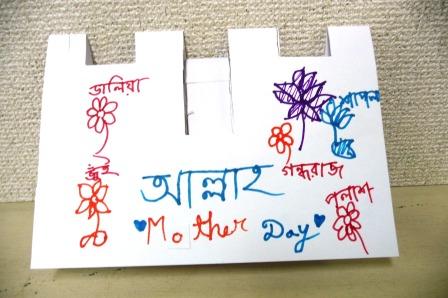 ডালিয়া
জুঁই
গন্ধরাজ
আল্লাহ
পলাশ
Mother Day